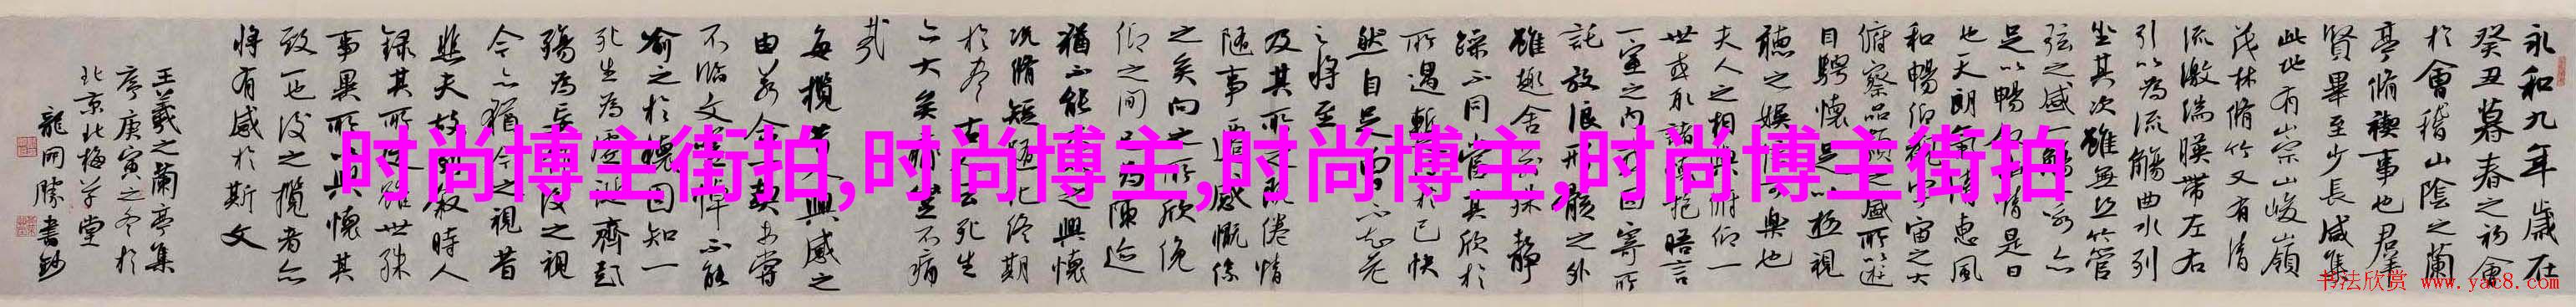 永和九年歲在
癸丑暮春之初會
於會稽山陰之蘭
亭脩禊事也群
賢畢至少長咸集
此地有崇山峻嶺
茂林脩竹又有清
流激湍暎帶左右
引以為流觴曲水列
坐其次雖無絲竹管
弦之盛一觴一詠亦
足以暢
也天朗氣清惠風
和暢仰觀宇宙之大
俯察品類之盛所以遊
目騁懷足以極視
聽之娛信可樂也
夫人之相與俯仰一
世或取諸懷抱晤言
一室之內或因寄所
託放浪形骸之外
雖趣舍萬殊靜
躁不同當其欣於
所遇暫得於己快
然自足不知老
之將至
及其所之既倦情
隨事遷感慨係
之矣向之所欣俛
仰之間已為陳迹
猶不能不以之興懷
況脩短隨化終期
於盡古人云死生
亦大矣豈不痛
哉
每攬昔人興感之
由若合一契未嘗
不臨文嗟悼不能
喻之於懷固知一
死生為虛誕齊彭
殤為妄作後之視
今亦猶今之視昔
悲夫故列敘時人
錄其所述雖世殊
事異所以興懷其
致一也後之攬者亦
將有感於斯文
王羲之蘭亭集
序庚寅之冬於
北京北梅草堂
龍開勝書鈔
时尚博主街拍,时尚博主,时尚博主,时尚博主街拍
书法欣赏 www.yac8.com